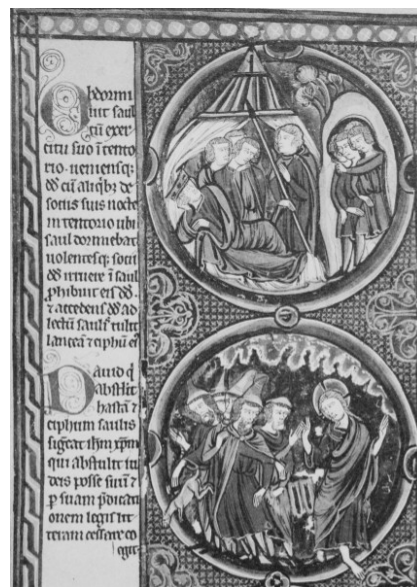 Obdormi
uit saul
cū exer
citu suo ī tento
rio. ueniensq;
dd cū aliq̇b; de
sociis suis nocte
in tentorio ubi
saul dormiebat
uolentesq; socii
dd irruere ī saul
ꝓhibuit eis dd.
⁊ accedens dd ad
lectū saulis tulit
lanceā ⁊ ciphū ei
Dauid q̇
abstulit
hastā ⁊
ciphum saulis
sigͥficat ihm̄ xp̄m
qui abstulit iu
deis posse suū ⁊
ꝑ suam p̄dicati
onem legis lit
teram cessare co
egit